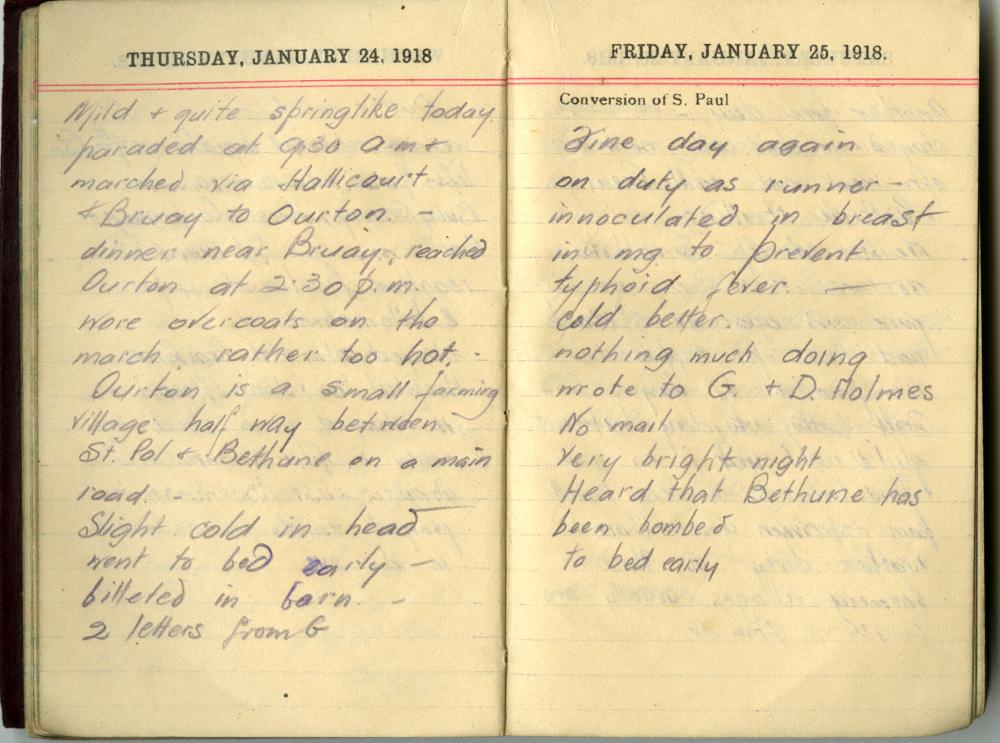 THURSDAY, JANUARY 24, 1918
Mild + quite springlike today
paraded at 9.30 a.m +
marched via Hallicourt
& Bruay to Ourton. -
dinner near Bruay, reached
Ourton at 2:30 p.m.
wore overcoats on the
march rather too hot. -
Ourton is a small farming
village half way between
St. Pol & Bethune on a main
road -
Slight cold in head
went to bed early -
billeted in barn. -
2 letters from G
FRIDAY, JANUARY 25, 1918.
Conversion of S. Paul
Fine day again
on duty as runner -
innoculated in breast
in mg to prevent
typhoid fever. -
cold better
nothing much doing
wrote to G. + D. Holmes
No mail
very bright night
Heard that Bethune has
been bombed
to bed early